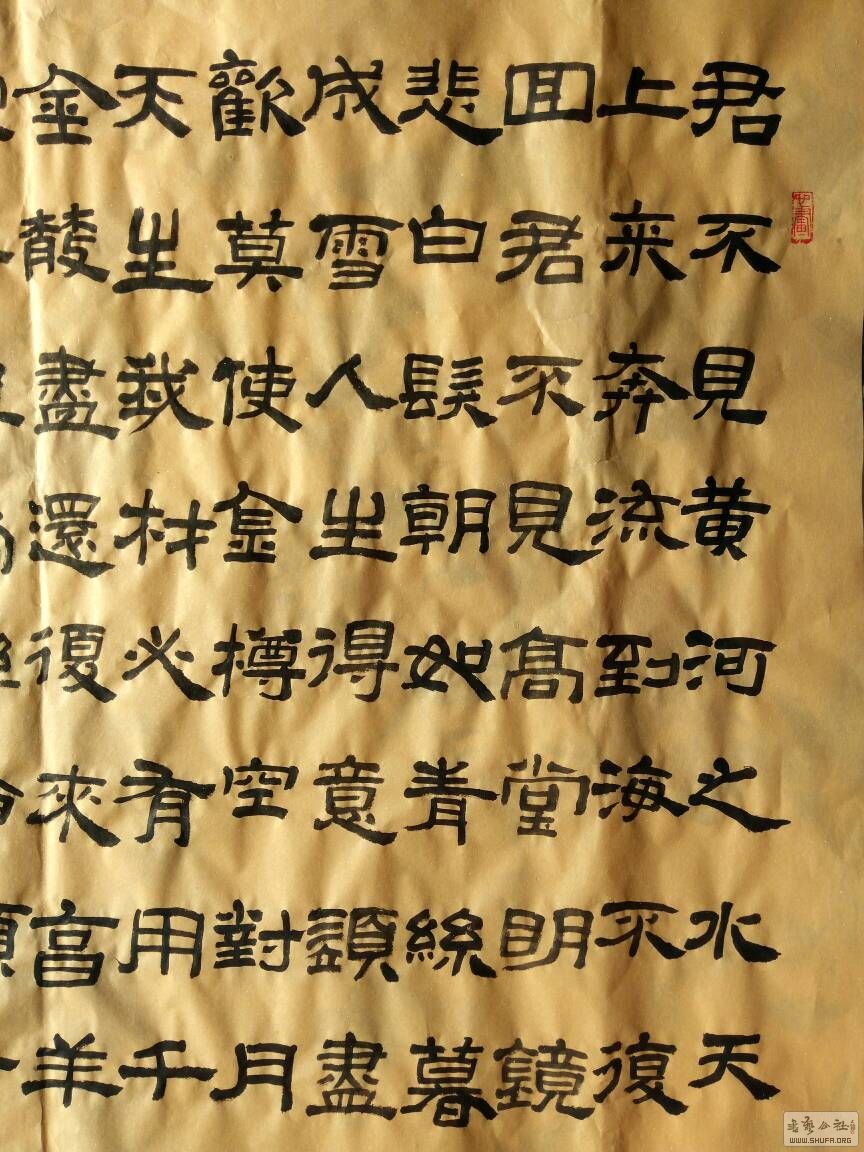 君不見黄河之水天
上来奔流到海不復
回君不見高堂明鏡
悲白髮朝如青絲暮
成雪人生得意須盡
歡莫使金樽空對月
天生我材必有用千
金散盡還復來亯羊
书艺公社
WWW.SHUFA.ORG